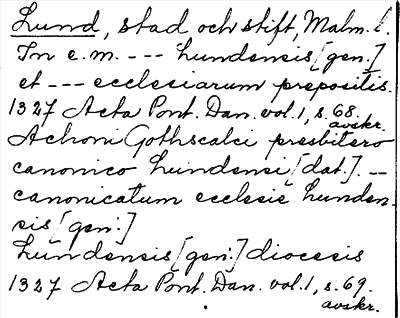 Lund, stad och stift, Malm. l.
In e.m. --- Lundensis [gen.]
et --- ecclesiarum prepositis.
1327 Acta Pont. Dan. vol. 1, s. 68.
avskr.
Achoni Gothscalci presbitero
canonico Lundensi [dat.]. --
canonicatum ecclesie Lunden-
sis [gen.]
Lundensis [gen.] diocesis
1327 Acta Pont. Dan. vol. 1, s. 69.
avskr.